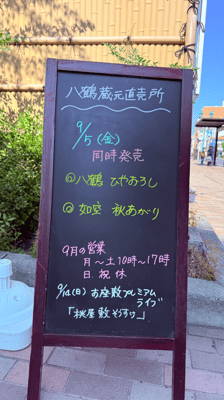 八鶴蔵元直売所
9/5(金)
同時発売
◎八鶴 ひやおろし
◎如空 秋あがり
9月の営業
月〜土10時〜17時
日.祝 休
9/14(日)お座敷プレミアム
ライブ
「桃屋敷そうすけ」